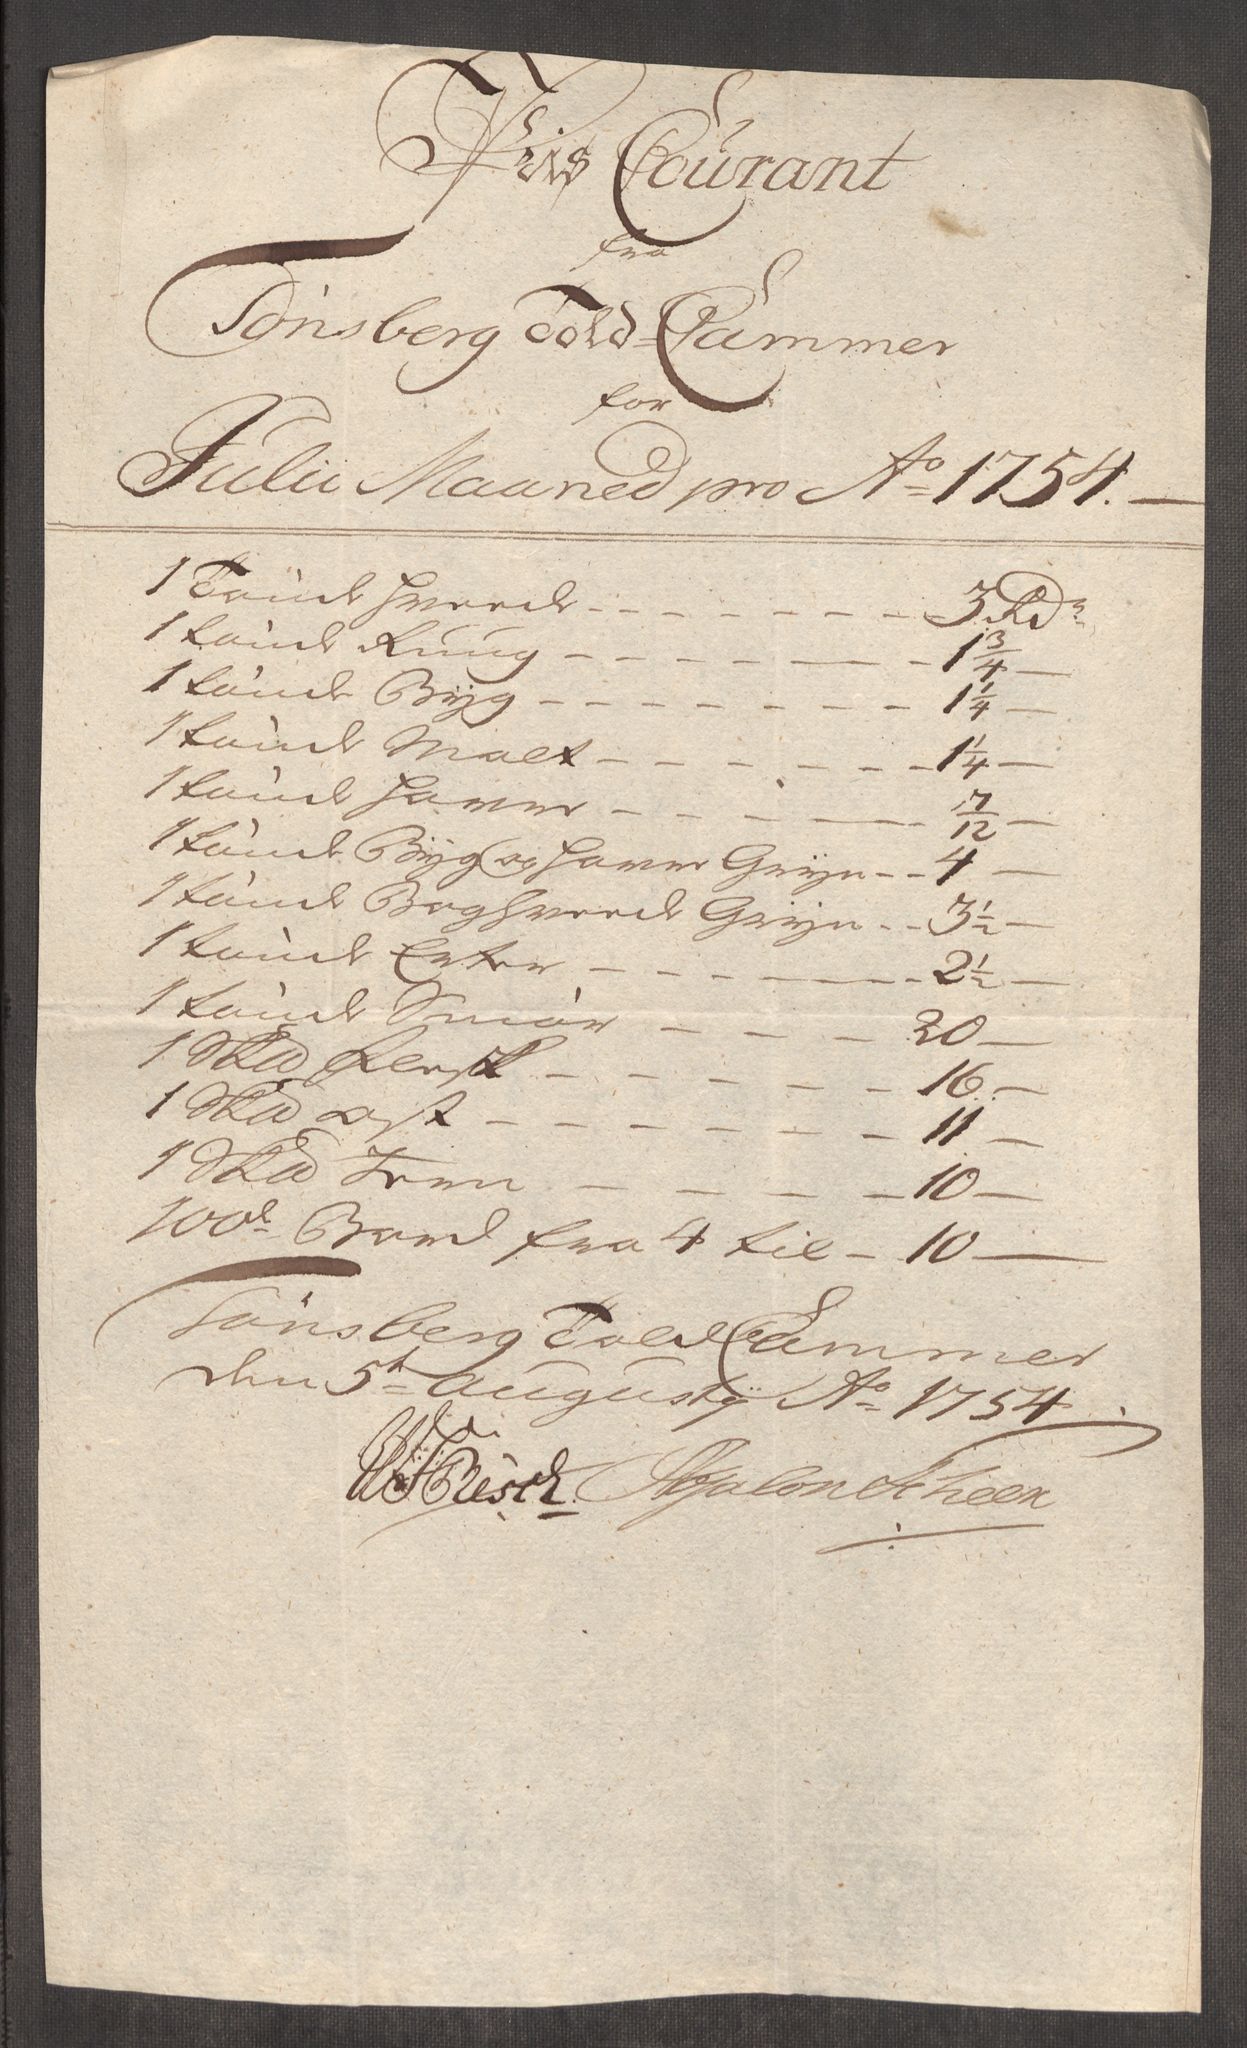 Priis Courant
fra
Tönsberg Told-Cammer
for
Julii Maaned pro Ao 1754.
1 Tönde Hvede - - - 3 Rdr
1 tönde Rüug - - - 1 3/4 -
1 tönde Byg - - - 1 1/4 -
1 tönde Malt - - - 1 1/4 -
1 tönde Haver - - - 7/12 -
1 tönde Byg og Haver Gryn - - 4 -
1 tönde Boghvede Gryn - - 3 1/2 -
1 tönde Erter - - - 2 1/2 -
1 tönde Smör - - - 20 -
1 Skd flesk - - - 16 -
1 Skd ost - - - 11 -
1 Skd Jern - - - 10 -
100d Bord fra 4 til - 10 -
Tönsberg Told Cammer
den 5t Augustij Ao 1754
Resch. Absalon Scheen